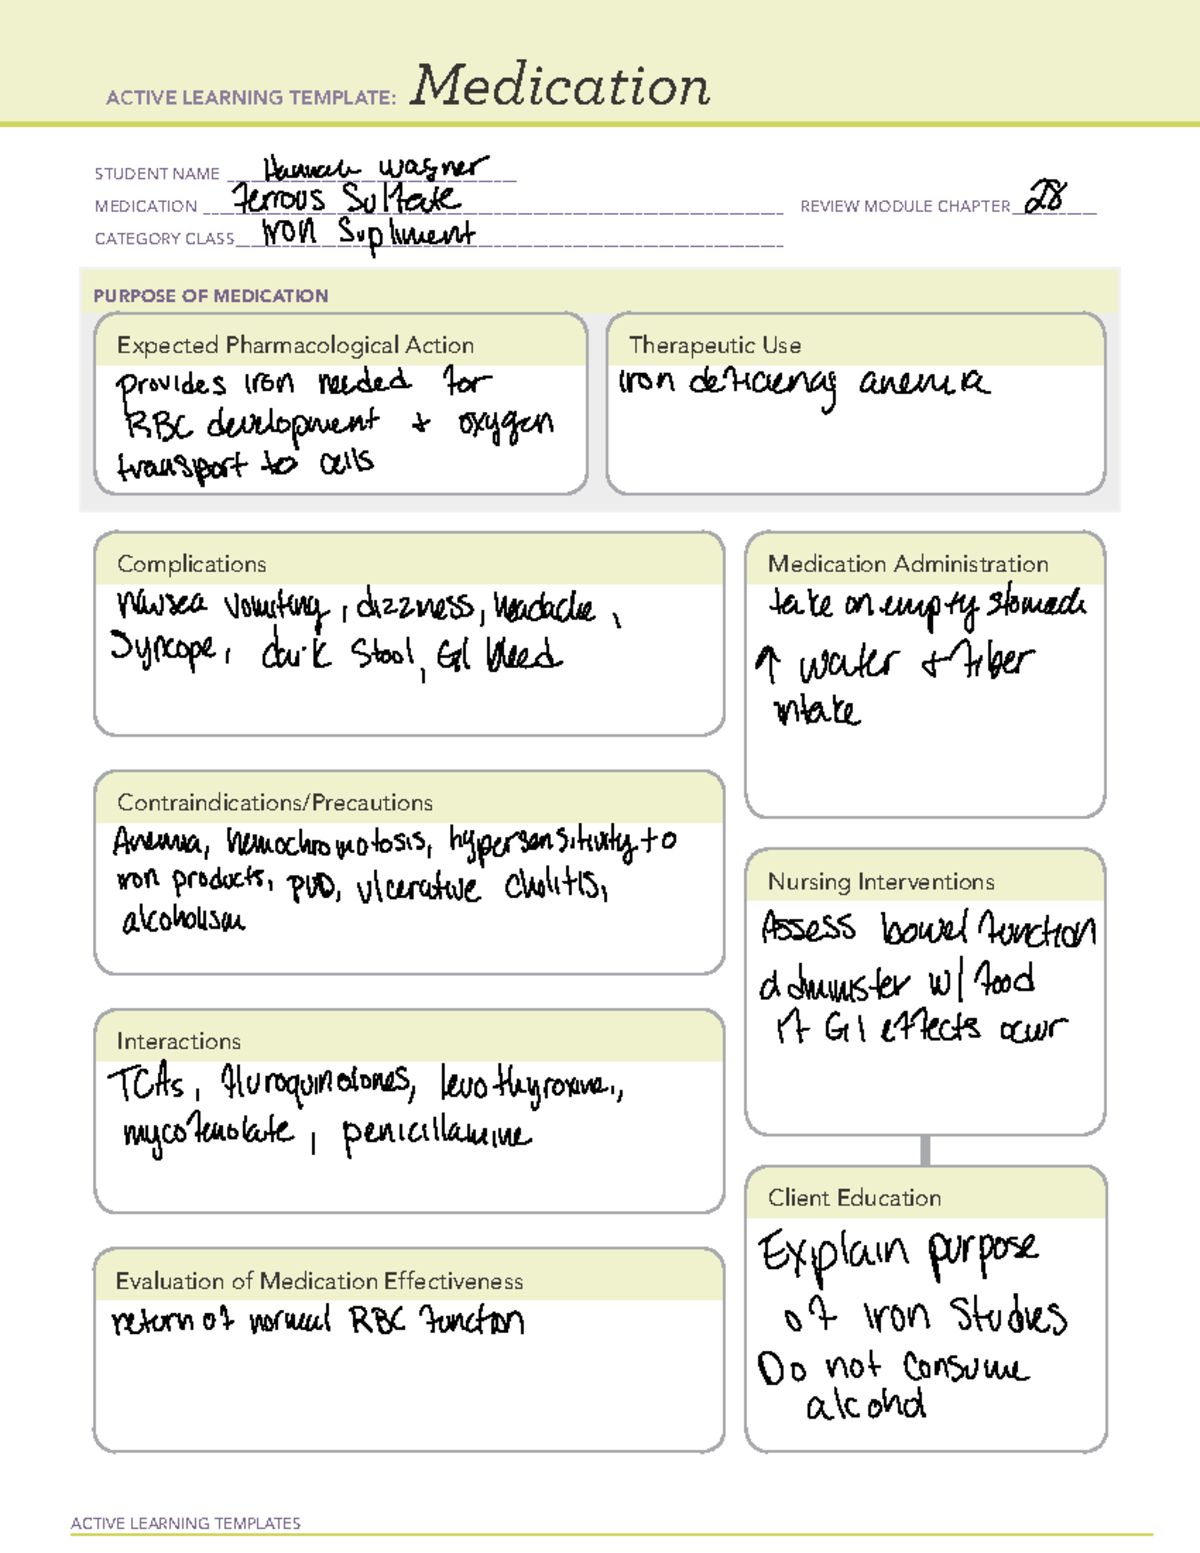 ACTIVE LEARNING TEMPLATE: Medication
STUDENT NAME Hannah Wagner
MEDICATION Ferrous Sulfate
REVIEW MODULE CHAPTER 28
CATEGORY CLASS Iron Supliment
PURPOSE OF MEDICATION
Expected Pharmacological Action
provides iron needed for
RBC development + oxygen
transport to cells
Therapeutic Use
iron deficiency anemia
Complications
nausea vomiting, dizzness, headache,
Syncope, dark stool, GI bleed
Medication Administration
take on empty stomach
↑ water + fiber
intake
Contraindications/Precautions
Anemia, hemochromotosis, hypersensitivity to
iron products, PUD, ulcerative cholitis,
alcoholism
Nursing Interventions
Assess bowel function
administer w/ food
if GI effects occur
Interactions
TCAs, fluroquinolones, levothyroxine,
mycofenolate, penicillamine
Client Education
Explain purpose
of iron studies
Do not consume
alcohol
Evaluation of Medication Effectiveness
return of normal RBC function
ACTIVE LEARNING TEMPLATES